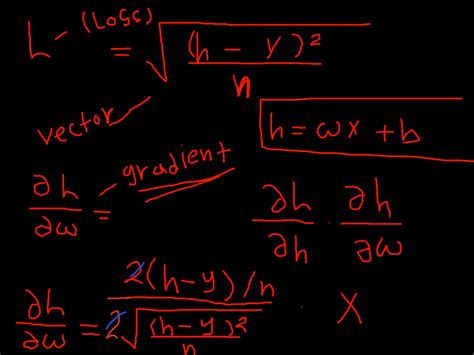 L - (Loss) = √((h - y)² / n)
vector
h = wx + b
gradient
∂h/∂w =
∂h/∂h · ∂h/∂w
∂h/∂w = 2(h-y)/n / 2√((h-y)²/n) · X